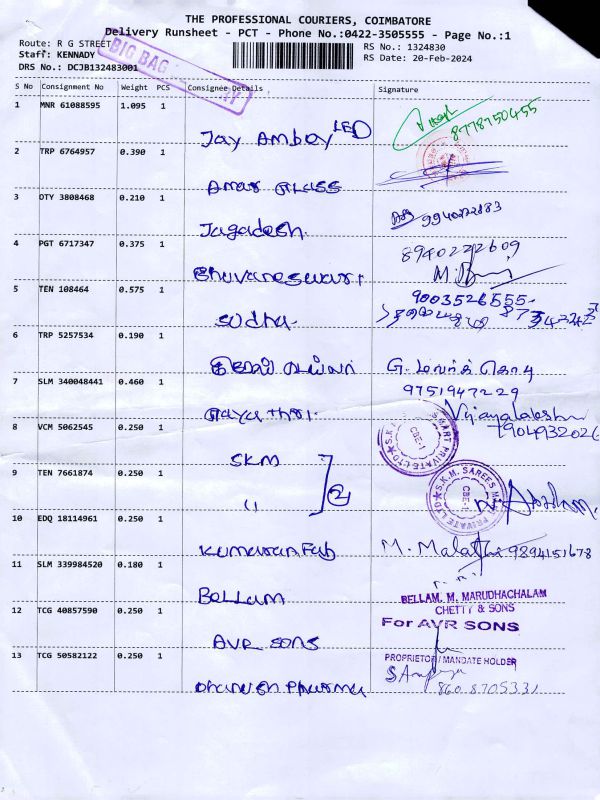 THE PROFESSIONAL COURIERS, COIMBATORE
Delivery Runsheet - PCT - Phone No.:0422-3505555 - Page No.:1
Route: R G STREET
Staff: KENNADY
DRS No.: DCJB132483001
RS No.: 1324830
RS Date: 20-Feb-2024
BIG BAG
S No Consignment No Weight PCS Consignee Details Signature
1 MNR 61088595 1.095 1
Jay Ambay LED 8778750455
2 TRP 6764957 0.390 1
Amar Glass
3 DTY 3808468 0.210 1
Jagadesh.
4 PGT 6717347 0.375 1
8940222609
Bhuvaneswari
5 TEN 108464 0.575 1
9003526555
Sudha
6 TRP 5257534 0.190 1
G.
7 SLM 340048441 0.460 1
9751947229
Gayathri.
8 VCM 5062545 0.250 1
SKM
9 TEN 7661874 0.250 1
S.K.M. SAREES MART PRIVATE LTD
CBE-1
"
10 EDQ 18114961 0.250 1
Kumaran Fab M. Malathi 9894151678
11 SLM 339984520 0.180 1
Bellam
BELLAM. M. MARUDHACHALAM
CHETTY & SONS
12 TCG 40857590 0.250 1
For AVR SONS
AVR SONS
13 TCG 50582122 0.250 1
PROPRIETOR / MANDATE HOLDER
Dhanush Pharma 860 8705331